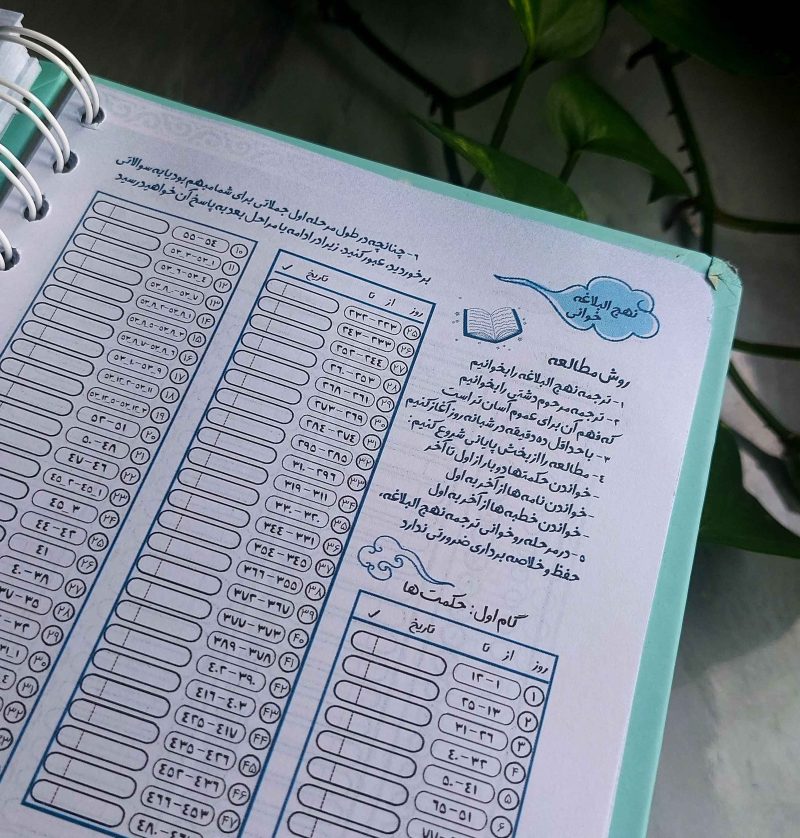 نهج البلاغه
خوانی
روش مطالعه
۱- ترجمه نهج البلاغه را بخوانیم
۲- ترجمه مرحوم دشتی را بخوانیم
که فهم آن برای عموم آسان تر است
۳- با حداقل ده دقیقه در شبانه روز آغاز کنیم
۴- مطالعه را از بخش پایانی شروع کنیم:
- خواندن حکمتها دوبار از اول تا آخر
- خواندن نامه ها از آخر به اول
- خواندن خطبه ها از آخر به اول
۵- در مرحله روخوانی ترجمه نهج البلاغه،
حفظ و خلاصه برداری ضرورتی ندارد
گام اول: حکمت ها
روز از تا تاریخ ✓
۱ ۱-۱۲
۲ ۱۳-۲۵
۳ ۲۶-۳۱
۴ ۳۲-۴۰
۵ ۴۱-۵۰
۶ ۵۱-۶۵
۶- چنانچه در طول مرحله اول جملاتی برای شما مبهم بود یا به سوالاتی
برخوردید، عبور کنید. زیرا در ادامه یا مراحل بعد به پاسخ آن خواهید رسید
روز از تا تاریخ ✓
۲۵ ۲۲۳-۲۳۲
۲۶ ۲۳۳-۲۴۳
۲۷ ۲۴۴-۲۵۲
۲۸ ۲۵۳-۲۶۰
۲۹ ۲۶۱-۲۶۸
۳۰ ۲۶۹-۲۷۳
۳۱ ۲۷۴-۲۸۴
۳۲ ۲۸۵-۲۹۵
۳۳ ۲۹۶-۳۱۰
۳۴ ۳۱۱-۳۱۹
۳۵ ۳۲۰-۳۳۰
۳۶ ۳۳۱-۳۴۴
۳۷ ۳۴۵-۳۵۴
۳۸ ۳۵۵-۳۶۶
۳۹ ۳۶۷-۳۷۲
۴۰ ۳۷۳-۳۷۷
۴۱ ۳۷۸-۳۸۹
۴۲ ۳۹۰-۴۰۲
۴۳ ۴۰۳-۴۱۶
۴۴ ۴۱۷-۴۲۵
۴۵ ۴۲۶-۴۳۵
۴۶ ۴۳۶-۴۵۲
۴۷ ۴۵۳-۴۶۶
۱۰ ۵۴-۵۵
۱۱ ۵۳.۱-۵۳.۳
۱۲ ۵۳.۴-۵۳.۶
۱۳
۱۴
۱۵
۱۶
۱۷
۱۸
۱۹
۲۰ ۵۱-۵۲
۲۱ ۴۸-۵۰
۲۲ ۴۶-۴۷
۲۳ ۴۵.۱-۴۵.۲
۲۴ ۴۵.۳
۲۵ ۴۲-۴۴
۲۶ ۴۱
۲۷ ۳۸-۴۰
۲۸ ۳۵-۳۷
۲۹
۳۰
۳۱